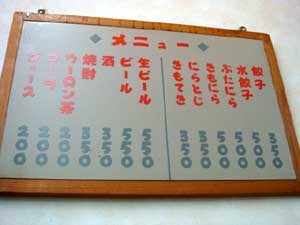 メニュー
餃子 350
水餃子 500
ぶたにら 500
きもにら 500
にらとじ 500
きもてき 500
生ビール 550
ビール 550
酒 350
焼酎 350
ウーロン茶 200
コーラ 200
ジュース 200